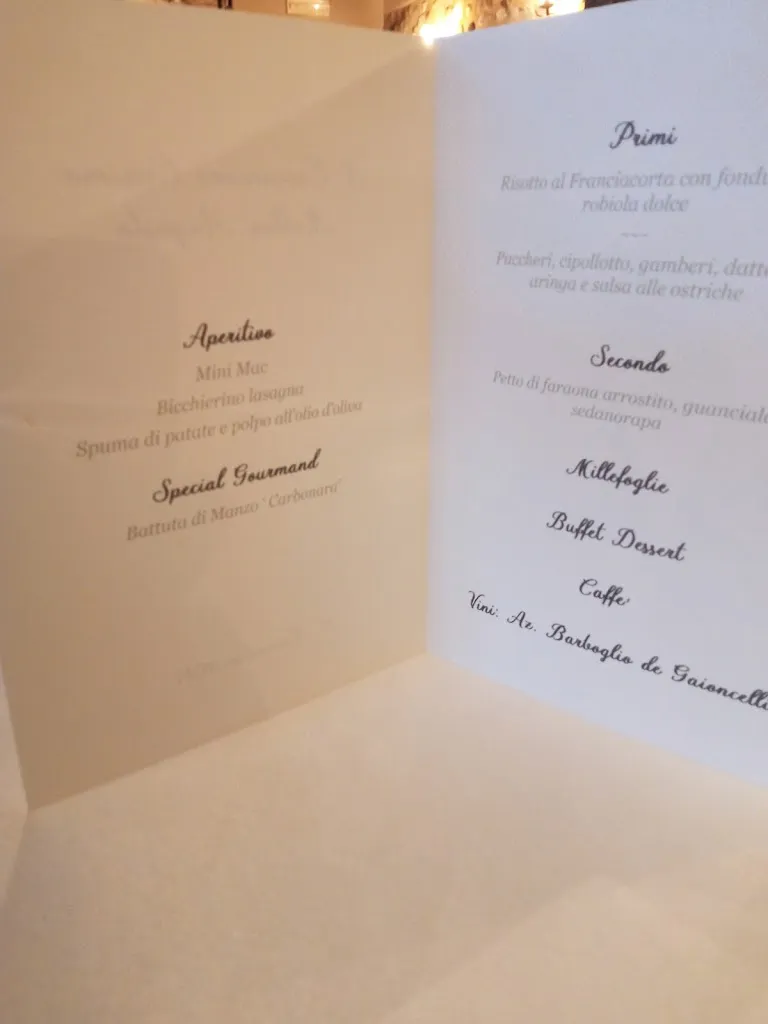 Aperitivo
Mini Mac
Bicchierino lasagna
Spuma di patate e polpo all'olio d'oliva
Special Gourmand
Battuta di Manzo "Carbonara"
Primi
Risotto al Franciacorta con fondu
robiola dolce
~~~
Paccheri, cipollotto, gamberi, datte
aringa e salsa alle ostriche
Secondo
Petto di faraona arrostito, guanciale
sedanorapa
Millefoglie
Buffet Dessert
Caffe'
Vini: Az. Barboglio de Gaioncelli